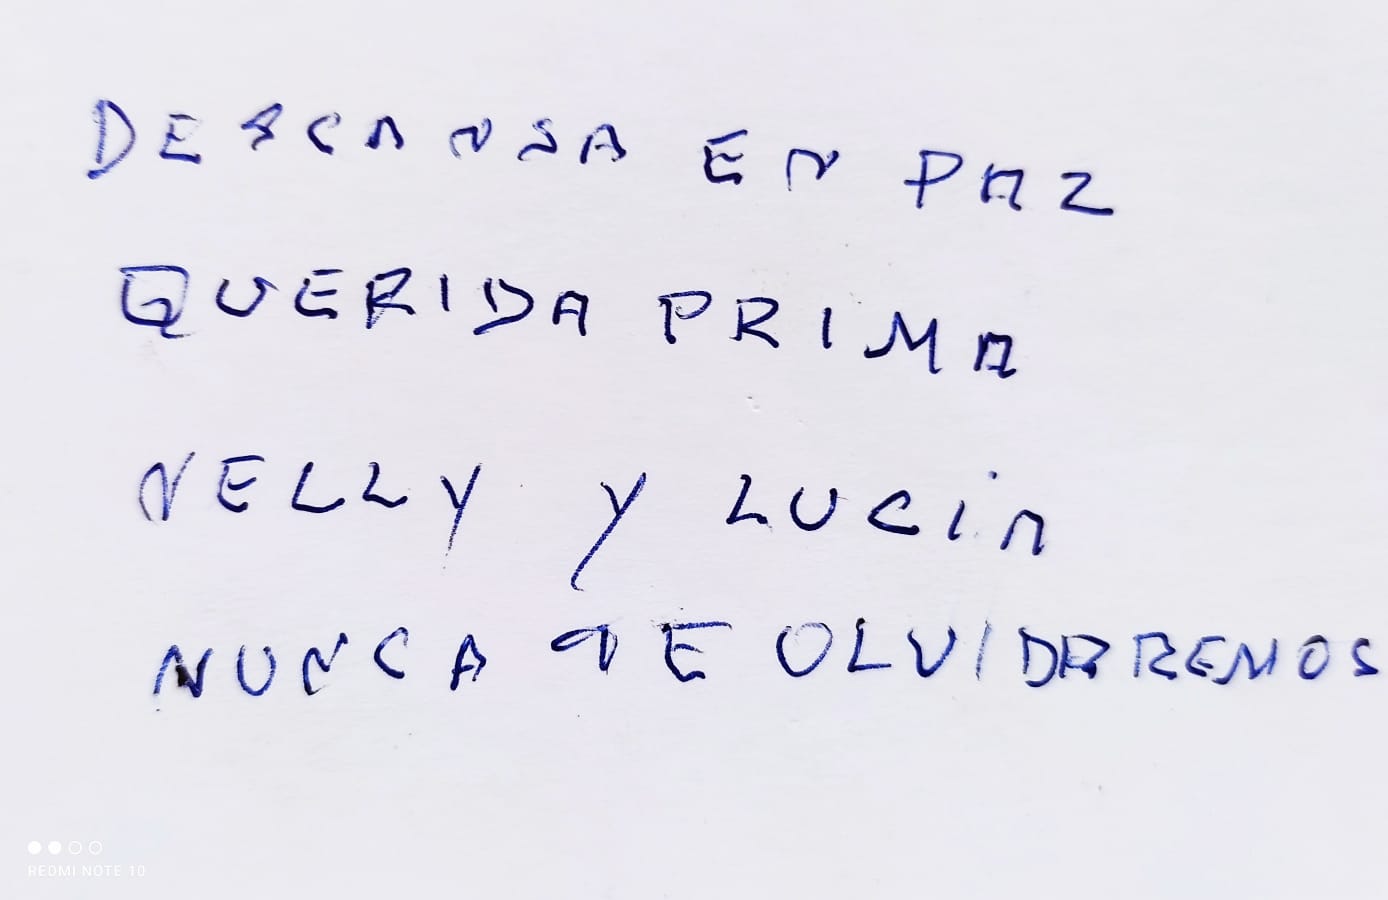 DESCANSA EN PAZ
QUERIDA PRIMA
NELLY Y LUCiA
NUNCA TE OLVIDAREMOS
REDMI NOTE 10